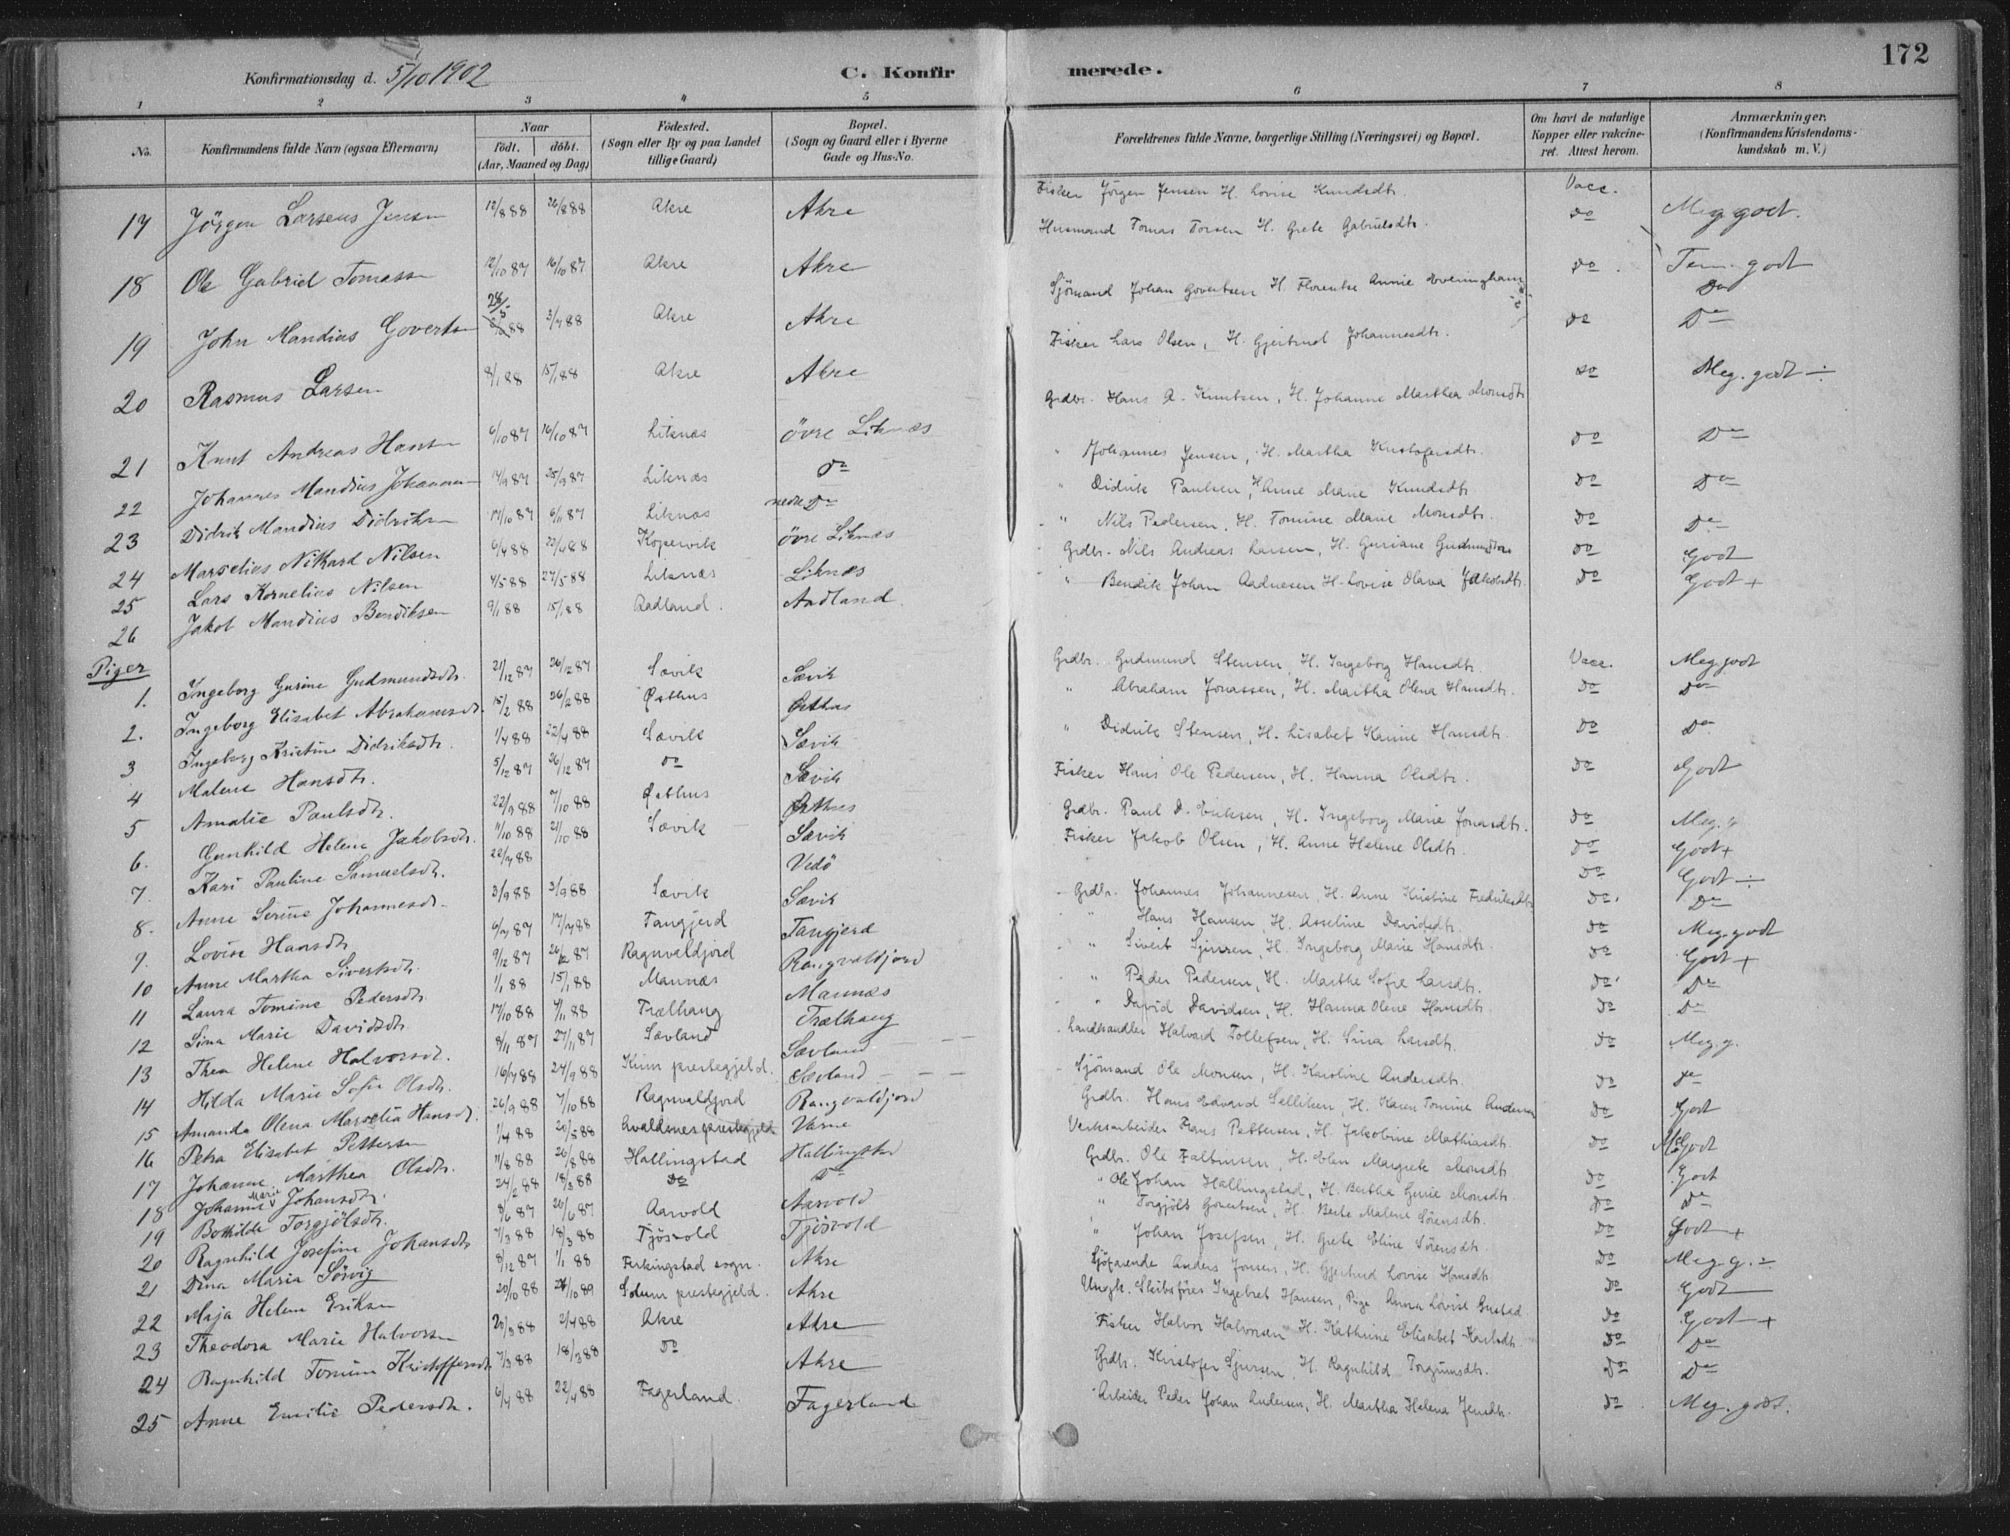 172
Konfirmationsdag d. 5/10 1902
C. Konfirmerede.
1 2 3 4 5 6 7 8
No.
Konfirmandens fulde Navn (ogsaa Efternavn)
Naar
födt. döbt.
(Aar, Maaned og Dag)
Födested.
(Sogn eller By og paa Landet
tillige Gaard)
Bopæl.
(Sogn og Gaard eller i Byerne
Gade og Hus-No.
Forældrenes fulde Navne, borgerlige Stilling (Næringsvei) og Bopæl.
Om havt de naturlige
Kopper eller vakcine-
ret. Attest herom.
Anmærkninger,
(Konfirmandens Kristendoms-
kundskab m. V.)
17 Jörgen Larsens Jensen 12/8 88 26/8 88 Akre Akre Fisker Jörgen Jensen H. Lovise Knudsdtr. Vacc. Meg godt.
18 Ole Gabriel Tomassen 12/10 87 16/10 87 Akre Akre Husmand Tomas Torsen H. Grete Gabrielsdtr. Do Tem. godt
19 John Mandius Govertsen 28/5 88 3/7 88 Akre Akre Sjömand Johan Govertsen H. Florentse Annie Everingham Do Do
20 Rasmus Larsen 8/1 88 15/1 88 Akre Akre Fisker Lars Olsen, H. Gjertrud Johannesdtr. Do Meg. godt ÷
21 Knut Andreas Hansen 6/10 87 16/10 87 Liknæs övre Liknæs Grdbr. Hans A. Knutsen, H. Johanne Marthea Monsdtr Do Do
22 Johannes Mandius Johannesen 14/9 87 25/9 87 Liknæs Do " Johannes Jensen, H. Martha Kristofersdtr. Do Do
23 Didrik Mandius Didriksen 17/10 87 6/11 87 Liknæs nedre Do " Didrik Paulsen, H. Anne Marie Knudsdtr Do Do
24 Marselius Nikard Nilsen 6/4 88 22/4 88 Kopervik övre Liknæs " Nils Pedersen, H. Tomine Marie Monsdtr. Do Godt
25 Lars Kornelius Nilsen 4/5 88 27/5 88 Liknæs Liknæs Grdbr. Nils Andreas Larsen, H. Guriane Gudmundsdtr Do Godt +
26 Jakob Mandius Bendiksen 9/1 88 15/1 88 Aadland. Aadland. " Bendik Johan Aadnesen H. Lovise Olava Jakobsdtr.
Piger
1. Ingeborg Gurine Gudmundsdtr. 21/12 87 26/12 87 Sævik Sævik Grdbr. Gudmund Stensen, H. Ingeborg Hansdtr. Vacc. Meg godt
2. Ingeborg Elisabet Abrahamsdtr. 15/2 88 26/2 88 Østhus Østhus " Abraham Jonassen, H. Martha Olena Hansdtr. Do Do
3 Ingeborg Kristine Didriksdtr. 1/4 88 22/4 88 Sævik Sævik " Didrik Stensen, H. Lisabet Karine Hansdtr. Do Do
4 Malene Hansdtr. 5/12 87 26/12 87 Do Sævik Fisker Hans Ole Pedersen, H. Hanna Olsdtr. Do Godt
5 Amalie Paulsdtr. 22/9 88 7/10 88 Østhus Østhus Grdbr. Paul D. Eriksen, H. Ingeborg Marie Jonasdtr. Do Meg. g
6. Gunhild Helene Jakobsdtr. 11/10 88 21/10 88 Sævik Sævik Fisker Jakob Olsen, H. Anne Helene Olsdtr. Do Godt +
7. Kari Pauline Samuelsdtr. 22/7 88 Vedö Do Godt ÷
8. Anne Serine Johannesdtr. 3/9 88 3/9 88 Sævik Sævik Grdbr. Johannes Johannesen, H. Anne Kristine Fredriksdtr Do Do
9. Lovise Hansdtr 6/7 87 17/7 88 Tangjerd Tangjerd " Hans Hansen, H. Asseline Davidsdtr. Do Meg. godt
10 Anne Martha Sivertsdtr. 9/12 87 26/12 87 Ragnvaldjord Rangvaldjord " Sivert Sjursen, H. Ingeborg Marie Hansdtr. Do Godt +
11 Laura Tomine Pedersdtr. 1/1 88 15/1 88 Mannæs Mannæs " Peder Pedersen, H. Marthe Sofie Larsdtr. Do Do
12 Sina Marie Davidsdtr 17/10 88 4/11 88 Trælhaug Trælhaug " David Davidsen, H. Hanna Olene Hansdtr. Do Do
13 Thea Helene Halvorsdtr. 8/11 87 27/11 87 Sævland Sævland Landhandler Halvard Tollefsen, H. Sina Larsdtr. Do Meg. g.
14 Hilda Marie Sofie Olsdtr. 16/7 88 24/9 88 Kinn prestegjeld. Sævland Sjömand Ole Monsen, H. Karoline Andersdtr. Do Do
15 Amanda Olena Marselia Hansdtr. 26/9 88 7/10 88 Ragnvaldjord Rangvaldjord Grdbr. Hans Edvard Selliken, H. Karen Tomine Andersen Do Godt
16 Petra Elisabet Pettersen 1/4 88 20/5 88 Avaldsnes prestegjeld Varne Verksarbeider Frans Pettersen, H. Jakobine Mathiasdtr. Do Godt
17 Johanne Marthea Olsdtr. 11/8 88 26/8 88 Hallingstad Hallingstad Grdbr. Ole Faltinsen, H. Elen Margrete Monsdtr. Do Godt
18 Johanne Marie Johansdtr. 24/2 88 18/3 88 Do Do " Ole Johan Hallingstad, H. Bertha Gurie Monsdtr. Do Do
19 Bothilde Torgjölsdtr. 8/6 87 26/6 87 Aarvold Aarvold " Torgjöls Govertsen, H. Berte Malene Sörensdtr. Do Godt +
20 Ragnhild Josefine Johansdtr 7/3 88 18/3 88 Tjösvold Tjösvold " Johan Josefsen, H. Grete Eline Sörensdtr. Do Meg. g. ÷
21 Dina Maria Sörvig 8/12 87 1/1 88 Ferkingstad sogn. Akre Sjöfarende Anders Jonsen, H. Gjertrud Lovise Hansdtr. Do Godt
22 Maja Helene Eriksen 20/10 88 24/10 89 Solum prestegjeld. Akre Ungk. Skibsförer Ingebret Hansen, Pige Anna Lovise Gustad Do Godt +
23 Theodora Marie Halvorsen 20/3 88 2/4 88 Akre Akre Fisker Halvor Halvorsen H. Kathrine Elisabet Karlsdtr. Do Do
24 Ragnhild Tomine Kristoffersdtr 7/3 88 18/3 88 Do Akre Grdbr. Kristofer Sjursen, H. Ragnhild Torgrimsdtr. Do Do
25 Anne Emilie Pedersdtr. 6/4 88 22/4 88 Fagerland. Fagerland Arbeider Peder Johan Andersen, H. Martha Helena Jensdtr. Do Meg. godt.